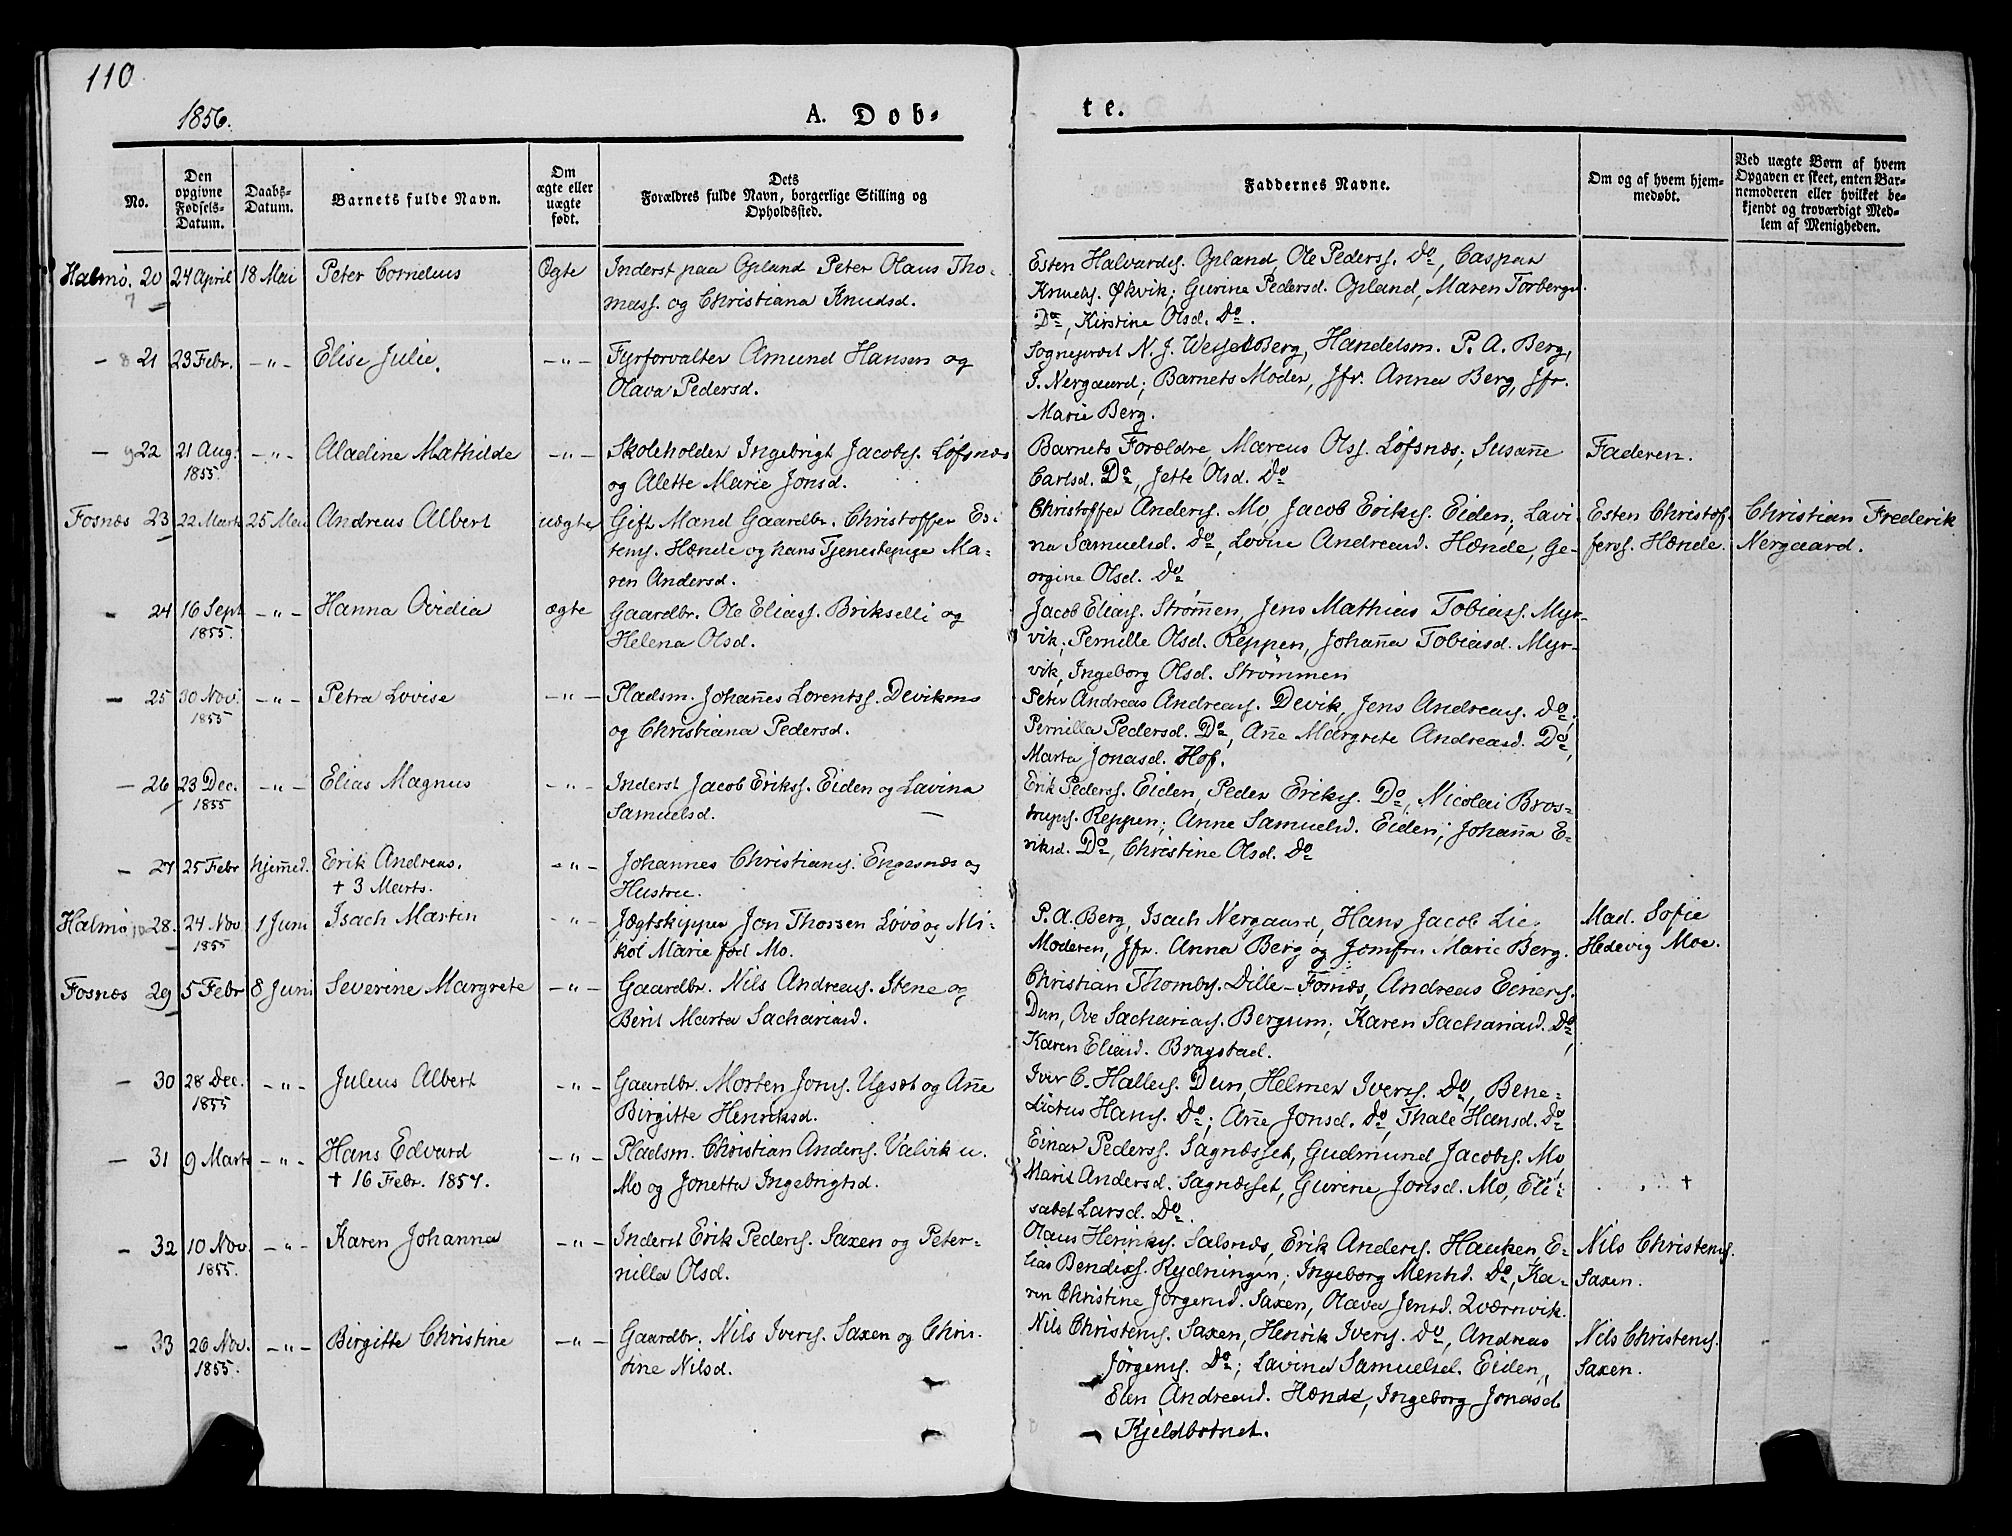 110
1856.
A. Døb-
te.
No.
Den opgivne Fødsels-Datum.
Daabs-Datum.
Barnets fulde Navn.
Om ægte eller uægte født.
Dets Forældres fulde Navn, borgerlige Stilling og Opholdssted.
Faddernes Navne.
Om og af hvem hjem-medøbt.
Ved uægte Børn af hvem Opgaven er skeet, enten Bar-nemoderen eller hvilket be-kjendt og troværdigt Med-lem af Menigheden.
Halmø. 20 24 April 18 Mai Peter Cornelius Ægte Inderst paa Opland Peter Olaus Tho-
7 mass. og Christiana Knudsd.
Esten Halvards. Opland, Ole Peders. Do, Caspar
Knuds. Økvik; Gurine Pedersd. Opland, Maren Torbergsd.
Do, Kirstine Olsd. Do.
- 8 21 23 Febr. -"- Elise Julie. -"- Fyrforvalter Amund Hansen og
Olava Pedersd.
Sognepræst N. J. Wessel Berg, Handelsm. P. A. Berg,
I. Nergaard; Barnets Moder, Jfr. Anna Berg, Jfr.
Marie Berg.
- 9 22 21 Aug. 1855. -"- Aladine Mathilde -"- Skoleholder Ingebrigt Jacobs. Løfsnæs
og Alette Marie Jonsd.
Barnets Forældre, Marcus Ols. Løfsnæs; Susanne Faderen.
Carlsd. Do, Jette Olsd. Do
Fosnæs 23 22 Marts 25 Mai Andreas Albert uægte Gift Mand Gaardbr. Christoffer Es-
tens. Hænde og hans Tjenestepige Ma-
ren Andersd.
Christoffer Anders. Mo, Jacob Eriks. Eiden; Lavi- Esten Christof- Christian Frederik
na Samuelsd. Do, Lovise Andreasd. Hænde, Ge- fers. Hænde. Nergaard.
orgine Olsd. Do
- 24 16 Sept 1855. -"- Hanna Ovidia ægte Gaardbr. Ole Elias. Brikselli og
Helena Olsd.
Jacob Elias. Strømen, Jens Mathias Tobias. Myr-
vik; Pernille Olsd. Reppen, Johana Tobiasd. Myr-
vik, Ingeborg Olsd. Strømmen
- 25 30 Nov. 1855 -"- Petra Lovise -"- Pladsm. Johanes Lorents. Devikens
og Christiana Pedersd.
Peter Andreas Andreas. Devik, Jens Andreas. Do;
Pernilla Pedersd. Do, Ane Margrete Andreasd. Do,
Marta Jonasd. Hof.
- 26 23 Dec. 1855 -"- Elias Magnus -"- Inderst Jacob Eriks. Eiden og Lavina
Samuelsd.
Erik Peders. Eiden, Peder Eriks. Do, Nicolai Bros-
trups. Reppen; Anne Samuelsd. Eiden; Johana E-
riksd. Do, Christine Olsd. Do
- 27 25 Febr hjemmed. Erik Andreas. -"- Johannes Christians. Engesnæs og
+ 3 Marts. Hustru.
Halmø 10 28. 24 Nov 1855 1 Juni Isach Martin -"- Jægtskipper Jon Thorsen Løvø og Ni-
kol Marie fød Mo.
P. A. Berg, Isach Nergaard, Hans Jacob Lie, Mad. Sofie
Moderen, Jfr. Anna Berg og Jomfru Marie Berg. Hedevig Moe.
Fosnæs 29 5 Febr 8 Juni Severine Margrete -"- Gaardbr. Nils Andreas. Stene og
Berit Marta Sachariasd.
Christian Thombs. Dille-Fosnæs, Andreas Einers.
Dun, Ove Sacharias. Bergum; Karen Sachariasd. Do,
Karen Eliasd. Bragstad.
- 30 28 Dec. 1855 -"- Julius Albert -"- Gaardbr. Morten Jons. Ugsæt og Ane
Birgitte Henriksd.
Iver C. Halles. Dun, Helmer Ivers. Do, Bene-
dictus Hans. Do; Ane Jonsd. Do, Thale Hansd. Do
- 31 9 Marts -"- Hans Edvard -"- Pladsm. Christian Anders. Valvik u.
+ 16 Febr. 1857. Mo og Jonetta Ingebrigtsd.
Einar Peders. Sagnæsset, Gudmund Jacobs. Mo,
Marit Andersd. Sagnæsset, Gurine Jonsd. Mo, Eli- +
sabet Larsd. Do.
- 32 10 Nov. 1855. -"- Karen Johanna -"- Inderst Erik Peders. Saxen og Peter-
nilla Olsd.
Olaus Henriks. Salsnæs, Erik Anders. Hauken, E- Nils Christens.
lias Bendix. Rydningen; Ingeborg Mentsd. Do, Ka- Saxen.
ren Christine Jørgensd. Saxen, Olava Jensd. Qværnvik.
- 33 26 Nov. 1855. -"- Birgitte Christine -"- Gaardbr. Nils Ivers. Saxen og Chris-
tine Nilsd.
Nils Christens. Saxen, Henrik Ivers. Do, Andreas Nils Christens.
Jørgens. Do; Lavina Samuelsd. Eiden, Saxen.
Elen Andreasd. Hænde, Ingeborg Jonasd
Kjeldbotnet.